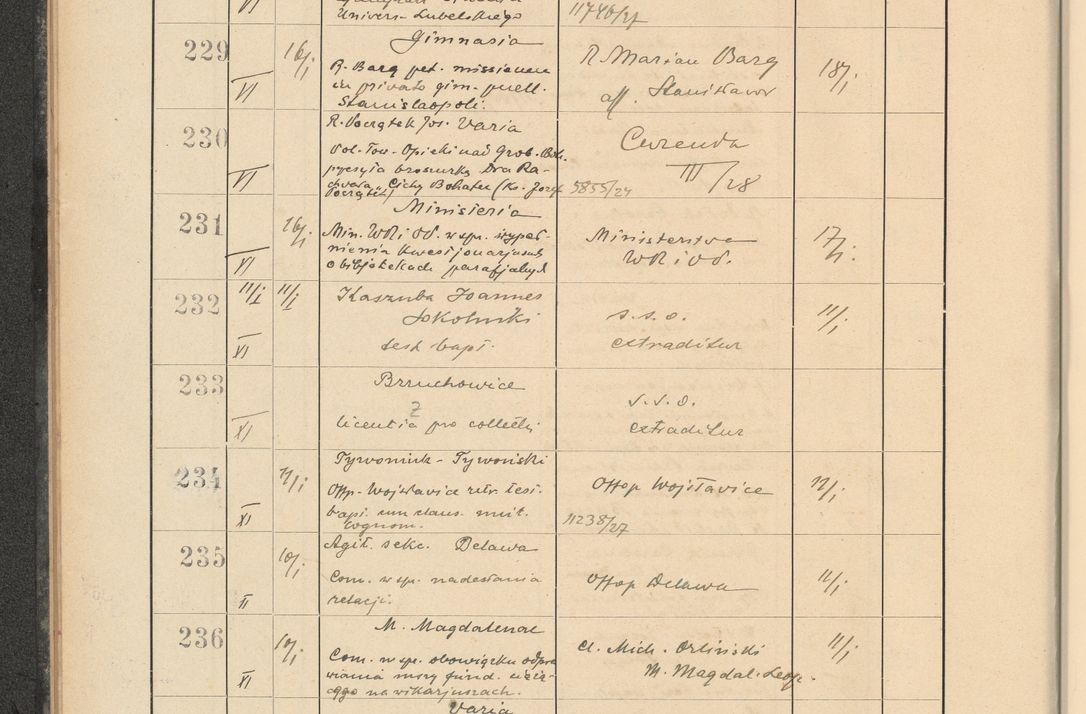 VI
Univers. Lubelskiego
11746/27
229
16/I
VI
Gimnasia
R. Barg pet. missionem
in privato gim. puell.
Stanislaopoli.
R. Marian Barg
aff. Stanisławów
18/I
230
VI
R. Początek Jos. Varia
Pol. Tow. Opieki nad Grob. Boh.
przesyła broszurkę Dra Ra-
"Cichy Bohater (Ks. Józef
Początek)
5855/24
Curenda
III/28
231
16/I
VI
Ministeria
Min. WR i OP. w sp. wypeł-
nienia kwestjonarjuszy
o bibljotekach parafjalnych
Ministerstwo
WR i OP.
17/I.
232
11/I
11/I
XI
Kaszuba Joannes
Sokolniki
test. bapt.
s. s. o.
extraditur
11/I
233
XI
Brzuchowice
2
licentia pro collecta
s. s. o.
extraditur
234
XI
11/I
Tywoniuk - Tywoński
Offp. Wojsławice retr. test.
bapt. cum claus. mut.
cognom.
11238/27
Offop Wojsławice
12/I
235
II
10/I
Agit. sekc. Delawa
Com. w sp. nadesłania
relacji.
Offop Delawa
11/I
236
XI
10/I
M. Magdalenae
Com. w sp. obowiązku odpra
wiania mszy fund. ciążą-
cego na wikarjuszach.
Cl. Mich. Orliński
M. Magdal. Leop.
11/I
Varia